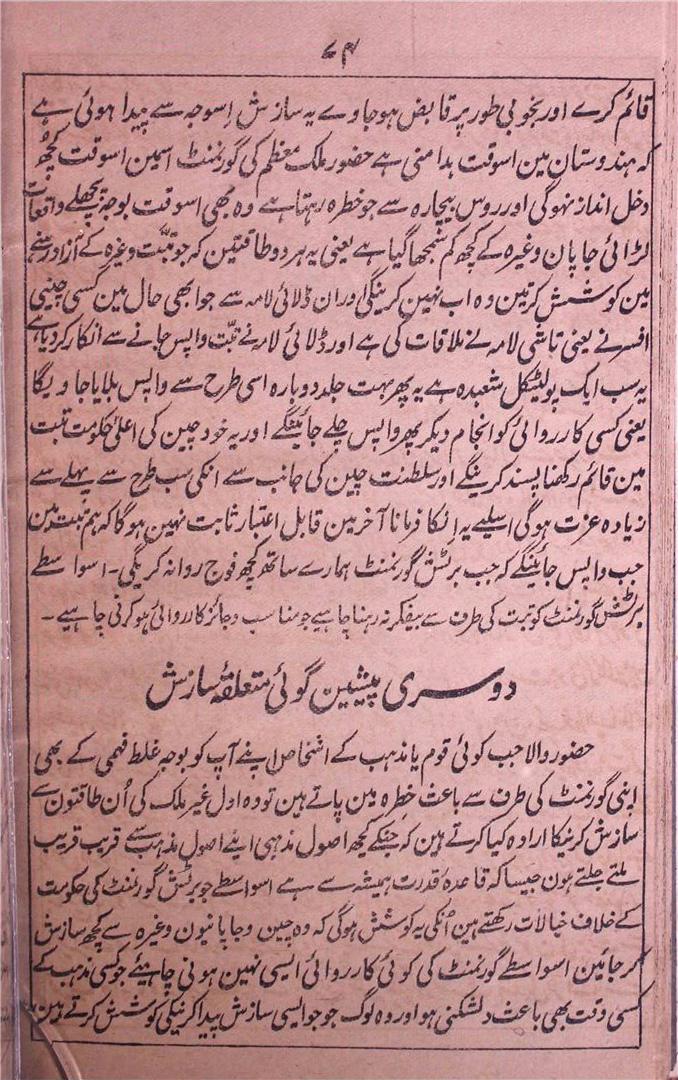 ۷۴
قائم کرے اور بخوبی طور پر قابض ہو جاوے یہ سازش اسوجہ سے پیدا ہوئی ہے
کہ ہندوستان مین اسوقت بدامنی ہے حضور ملک معظم کی گورنمنٹ اسمین اسوقت کچھ
دخل انداز نہوگی اور روس بیچارہ سے جو خطرہ رہتا ہے وہ بھی اسوقت بوجہ پچھلے واقعات
لڑائی جاپان وغیرہ کے کچھ کم سمجھا گیا ہے یعنی یہ ہر دو طاقتین کہ جو تبت وغیرہ کے آزاد رہنے
مین کوشش کرتین وہ اب نہین کرینگی اور ان ڈلائی لامہ سے جو ابھی حال مین کسی چینی
افسر نے یعنی تاشی لامہ نے ملاقات کی ہے اور ڈلائی لامہ نے تبت واپس جانے سے انکار کر دیا ہے
یہ سب ایک پولیٹکل شعبدہ ہے یہ پھر بہت جلد دوبارہ اسی طرح سے واپس بلایا جاویگا
یعنی کسی کارروائی کو انجام دیکر پھر واپس چلے جائینگے اور یہ خود چین کی اعلیٰ حکومت تبت
مین قائم رکھنا پسند کرینگے اور سلطنت چین کی جانب سے انکی سب طرح سے پہلے سے
زیادہ عزت ہوگی اسلیے یہ انکا فرمانا آخر مین قابل اعتبار ثابت نہین ہوگا کہ ہم تبت مین
جب واپس جائینگے کہ جب برٹش گورنمنٹ ہمارے ساتھ کچھ فوج روانہ کریگی۔ اسواسطے
برٹش گورنمنٹ کو تبت کی طرف سے بیفکر نہ رہنا چاہیے جو مناسب و جائز کارروائی ہو کرنی چاہیے۔
دوسری پیشین گوئی متعلقۂ سازش
حضور والا جب کوئی قوم یا مذہب کے اشخاص اپنے آپ کو بوجہ غلط فہمی کے بھی
اپنی گورنمنٹ کی طرف سے باعث خطرہ مین پاتے ہین تو وہ اول غیر ملک کی اُن طاقتون سے
سازش کرنیکا ارادہ کیا کرتے ہین کہ جنکے کچھ اصول مذہبی اپنے اصول مذہب سے قریب قریب
ملتے جلتے ہون جیسا کہ قاعدہ قدرت ہمیشہ سے ہے اسواسطے جو برٹش گورنمنٹ کی حکومت
کے خلاف خیالات رکھتے ہین اُنکی یہ کوشش ہوگی کہ وہ چین و جاپانیون وغیرہ سے کچھ سازش
کر جائین اسواسطے گورنمنٹ کی کوئی کارروائی ایسی نہین ہونی چاہیئے جو کسی مذہب کے
کسی وقت بھی باعث دلشکنی ہو اور وہ لوگ جو جو ایسی سازش پیدا کرنیکی کوشش کرتے ہین